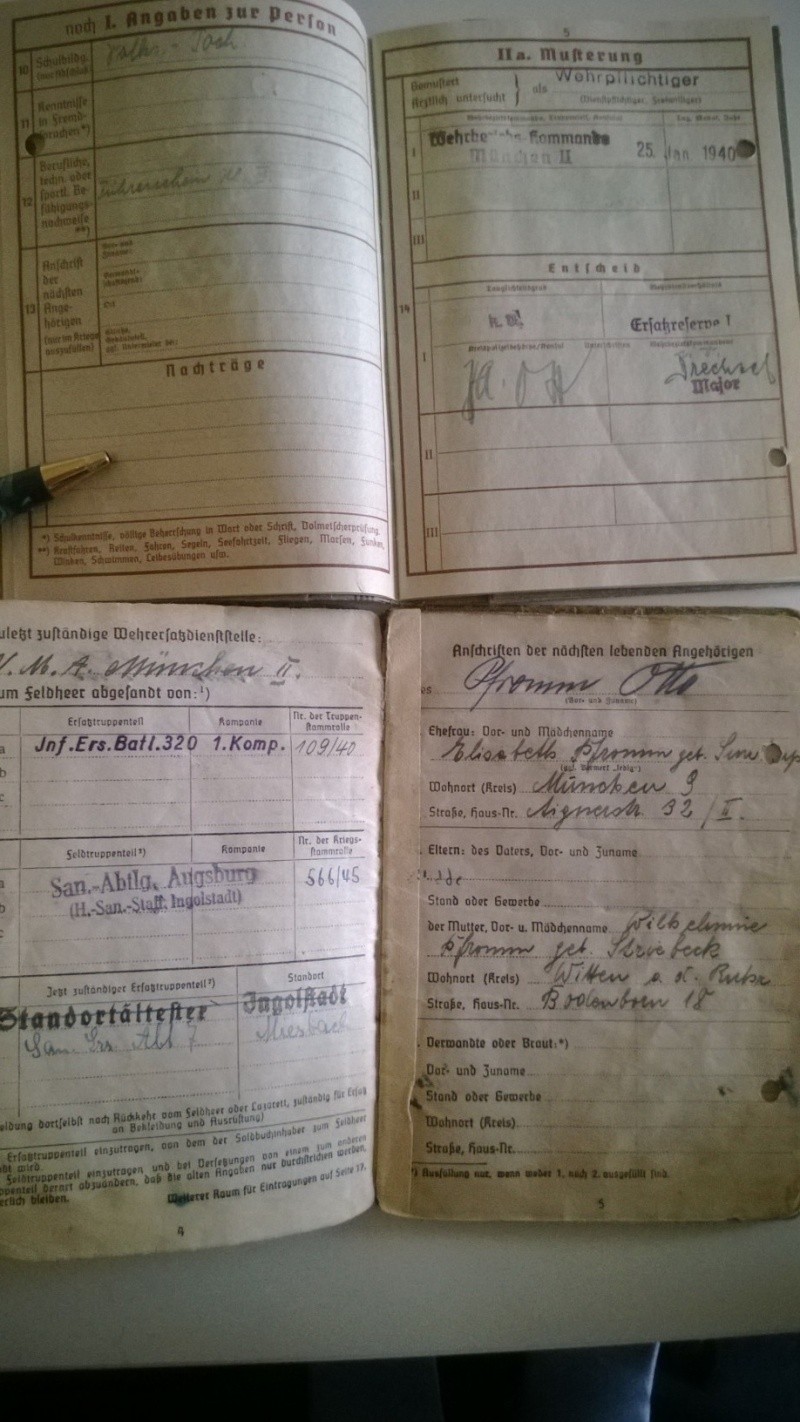 noch I. Angaben zur Person
10 Schulbildg.
Volks-
11 Kenntnisse
in Fremd-
sprachen*)
12 Berufliche,
techn. oder
sportl. Be-
fähigungs-
nachweise
**)
Führerschein
13 Anschrift
der
nächsten
Ange-
hörigen
(nur im Kriege
auszufüllen)
Vor- und
Zuname:
Ort
Nachträge
*) Schulkenntnisse, völlige Beherrschung in Wort oder Schrift, Dolmetscherprüfung.
**) Kraftfahren, Reiten, Fahren, Segeln, Seefahrtzeit, Fliegen, Morsen, Funken,
Winken, Schwimmen, Leibesübungen usw.
5
IIa. Musterung
Gemustert
Ärztlich untersucht } als Wehrpflichtiger
(Dienstpflichtiger, Freiwilliger)
I Kommando
München II 25. Jan 1940
II
III
Entscheid
14
Tauglichkeitsgrad
Ersatzreserve I
I
Major
II
III
zuletzt zuständige Wehrersatzdienststelle:
W. M. A. München II.
zum Feldheer abgesandt von:¹)
Ersatztruppenteil Kompanie Nr. der Truppen-
stammrolle
a Inf.Ers.Batl.320 1.Komp. 109/40
b
c
Feldtruppenteil²) Kompanie Nr. der Kriegs-
stammrolle
a San.-Abtlg. Augsburg 566/45
b (H.-San.-Staff. Ingolstadt)
c
Jetzt zuständiger Ersatztruppenteil³) Standort
Standortältester Ingolstadt
San. Ers. Abt 7 Miesbach
dortselbst nach Rückkehr vom Feldheer oder Lazarett, zuständig für Ersatz
an Bekleidung und Ausrüstung)
Ersatztruppenteil einzutragen, von dem der Soldbuchinhaber zum Feldheer
wird.
Feldtruppenteil einzutragen und bei Versetzungen von einem zum anderen
derart abzuändern, daß die alten Angaben nur durchstrichen werden,
bleiben. Weiterer Raum für Eintragungen auf Seite 17.
4
Anschriften der nächsten lebenden Angehörigen
des Pfromm Otto
(Vor- und Zuname)
Ehefrau: Vor- und Mädchenname
Elisabeth Pfromm geb.
(ggf. Vermerk „ledig")
Wohnort (Kreis) München 9
Straße, Haus-Nr. Aignerstr 32/II.
Eltern: des Vaters, Vor- und Zuname
Stand oder Gewerbe
der Mutter, Vor- u. Mädchenname Wilhelmine
Pfromm geb. Striebeck
Wohnort (Kreis) Witten a. d. Ruhr
Straße, Haus-Nr. Bodenborn 18
Verwandte oder Braut:*)
Vor- und Zuname
Stand oder Gewerbe
Wohnort (Kreis)
Straße, Haus-Nr.
*) Ausfüllung nur, wenn weder 1. noch 2. ausgefüllt sind.
5